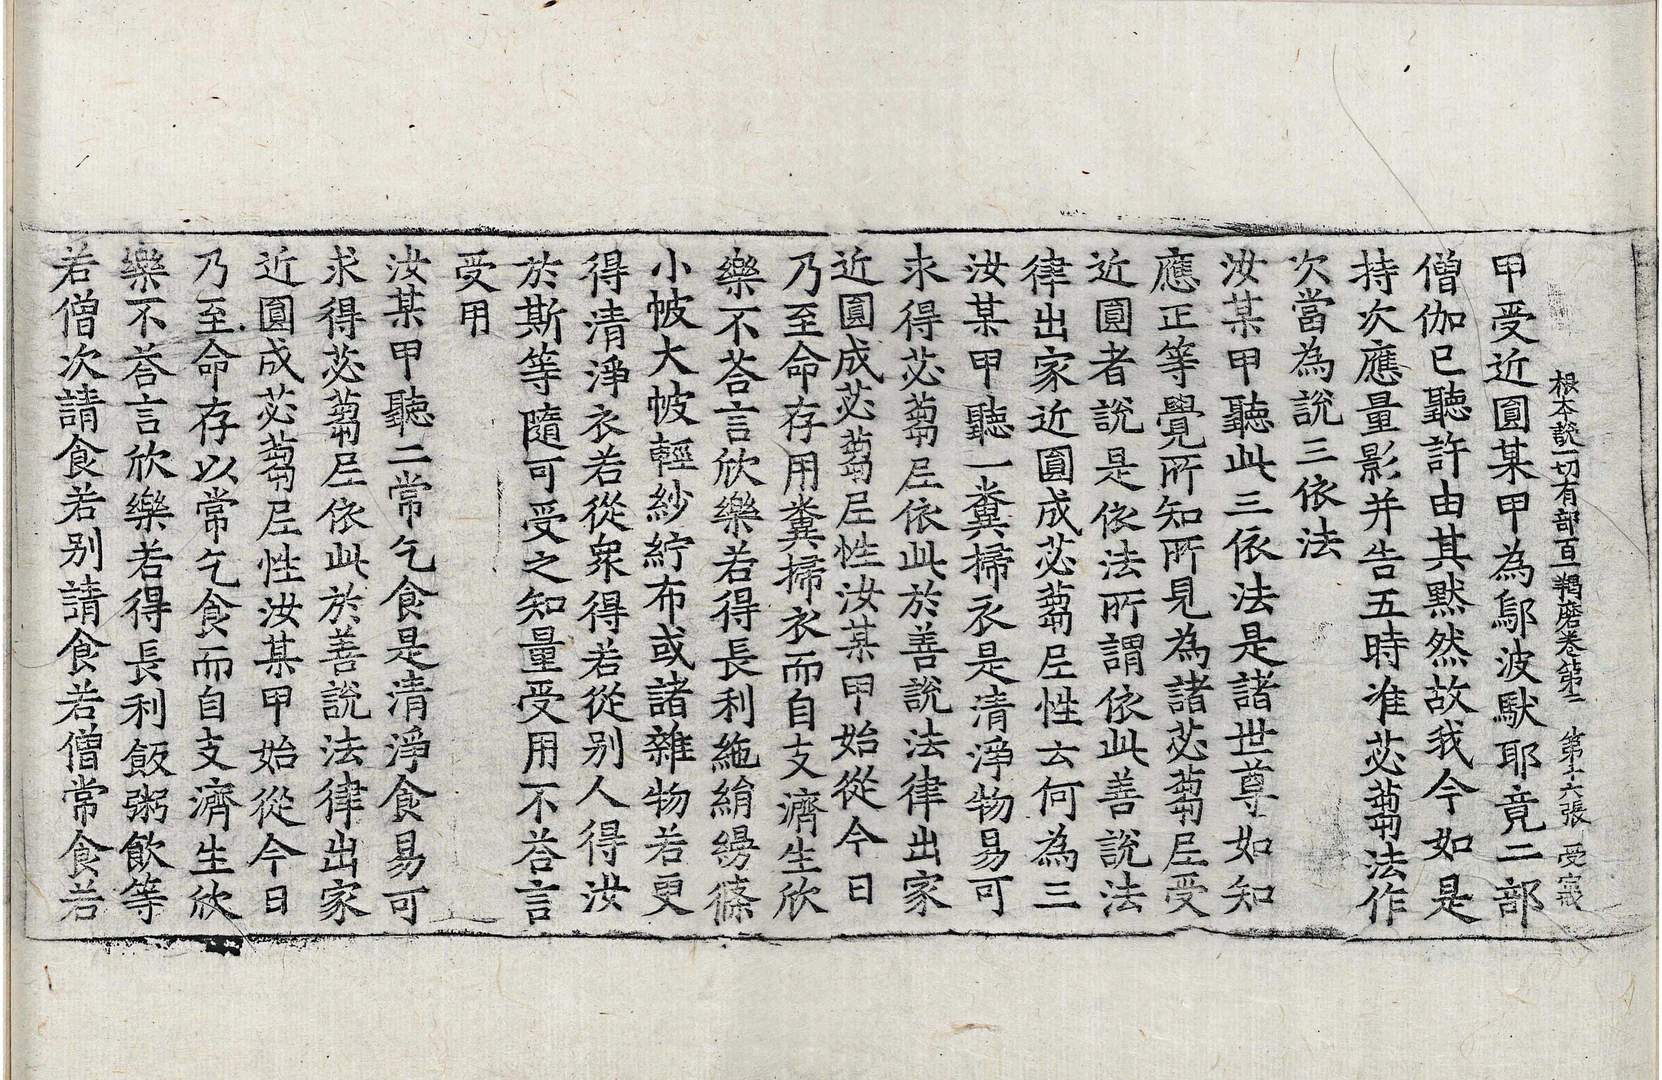 根本說一切有部百一羯磨卷第二　第十六張　受字號
甲受近圓某甲為鄔波馱耶竟二部
僧伽已聽許由其默然故我今如是
持次應量影并告五時准苾蒭法作
次當為說三依法
汝某甲聽此三依法是諸世尊如知
應正等覺所知所見為諸苾蒭尼受
近圓者說是依法所謂依此善說法
律出家近圓成苾蒭尼性云何為三
汝某甲聽一糞掃衣是清淨物易可
求得苾蒭尼依此於善說法律出家
近圓成苾蒭尼性汝某甲始從今日
乃至命存用糞掃衣而自支濟生欣
樂不荅言欣樂若得長利絁絹縵條
小帔大帔輕紗紵布或諸雜物若更
得清淨衣若從眾得若從別人得汝
於斯等隨可受之知量受用不荅言
受用
汝某甲聽二常乞食是清淨食易可
求得苾蒭尼依此於善說法律出家
近圓成苾蒭尼性汝某甲始從今日
乃至命存以常乞食而自支濟生欣
樂不荅言欣樂若得長利飯粥飲等
若僧次請食若別請食若僧常食若